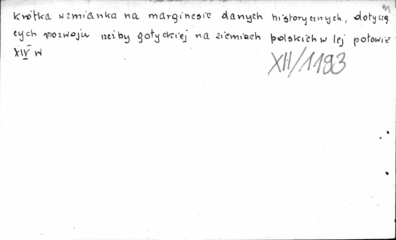 krótka wzmianka na marginesie danych historycznych, dotyczą
cych rozwoju rzeźby gotyckiej na ziemiach polskich w Iej połowie
XIV w
XII/1193